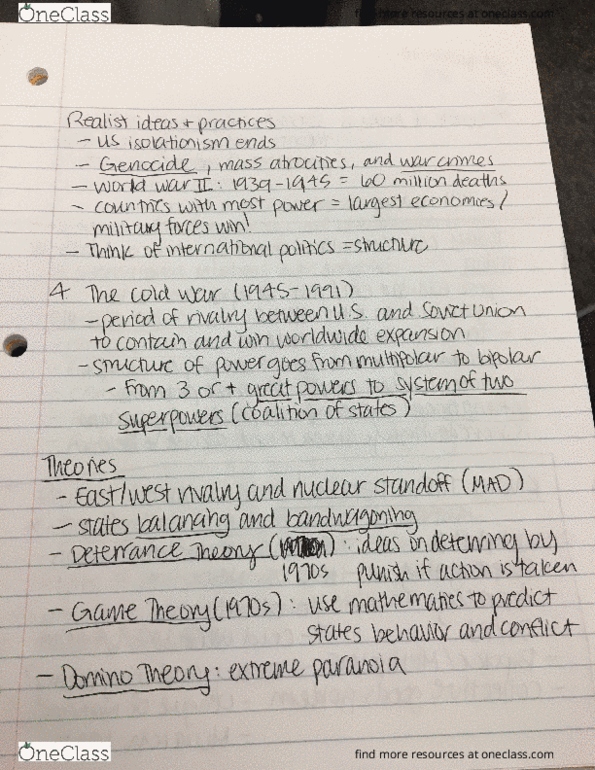 OneClass
find more resources at oneclass.com
Realist ideas + practices
- US isolationism ends
- Genocide, mass atrocities, and war crimes
- World War II: 1939-1945 = 60 million deaths
- countries with most power = largest economies/
military forces win!
- Think of international politics = structure
4 The Cold War (1945-1991)
- period of rivalry between U.S. and Soviet Union
to contain and win worldwide expansion
- structure of power goes from multipolar to bipolar
- From 3 or + great powers to system of two
superpowers (coalition of states)
Theories
- East/west rivalry and nuclear standoff (MAD)
- states balancing and bandwagoning
- Deterrance Theory (1970s) : ideas on deterring by
punish if action is taken
- Game Theory (1970s) : use mathematics to predict
states behavior and conflict
- Domino Theory : extreme paranoia
OneClass
find more resources at oneclass.com